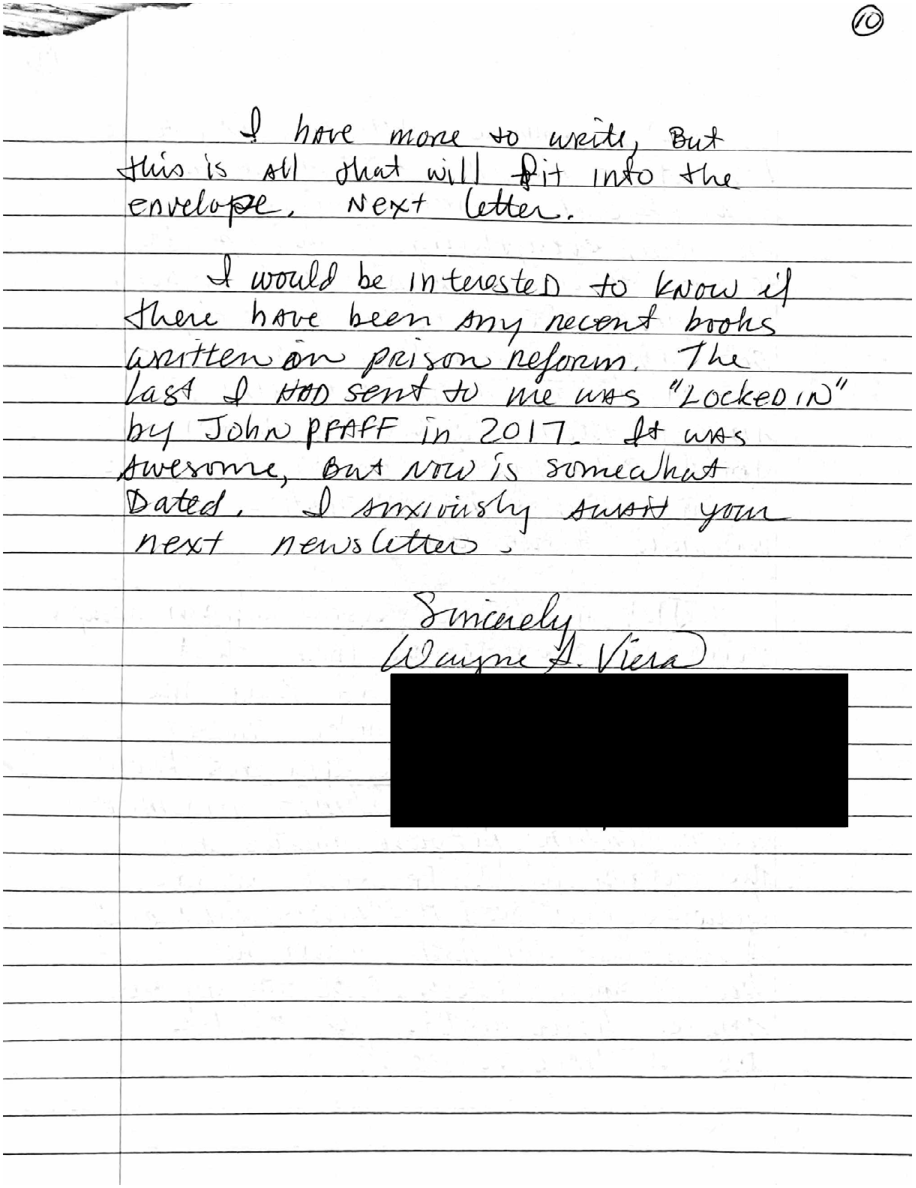 10
I have more to write, But
this is all that will fit into the
envelope. Next letter.
I would be interested to know if
there have been any recent books
written on prison reform. The
last I HAD sent to me was "LOCKED IN"
by JOHN PFAFF in 2017. It was
Awesome, But Now is somewhat
Dated. I anxiously await your
next newsletter.
Sincerely
Wayne A. Viera